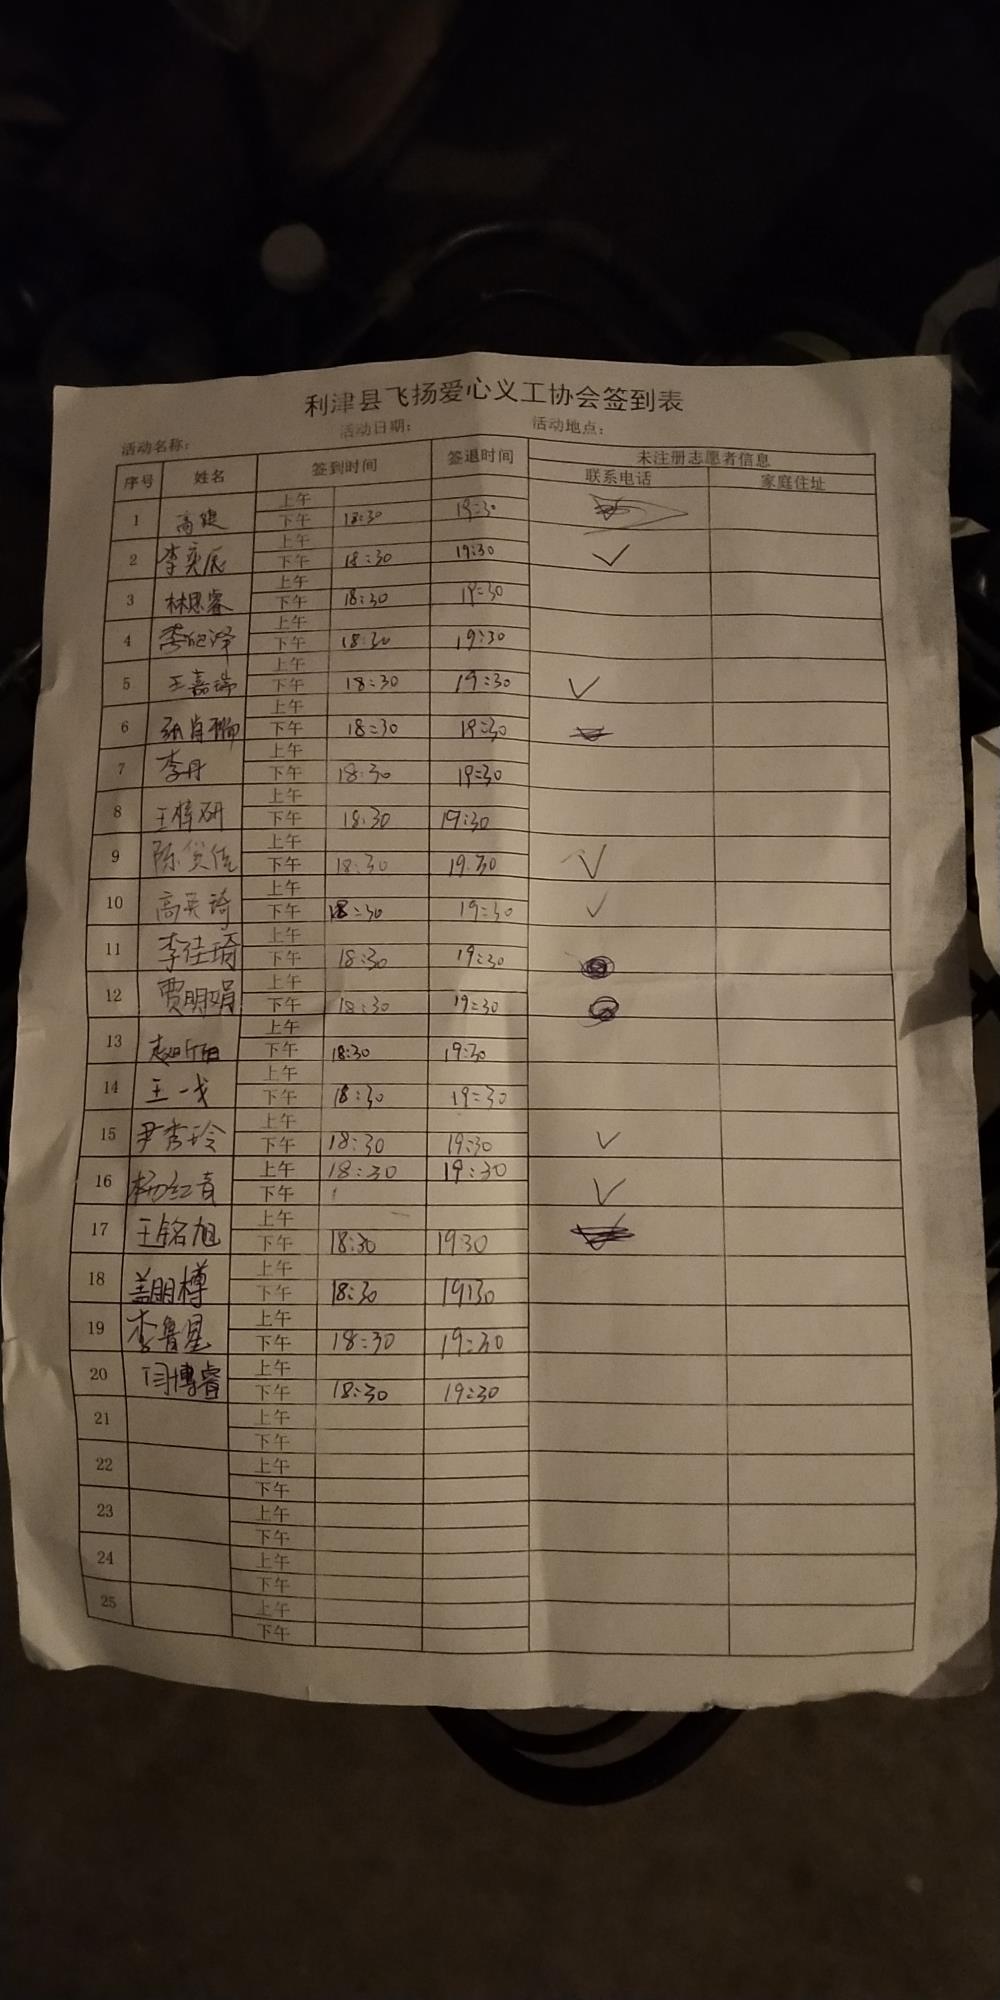 利津县飞扬爱心义工协会签到表
活动名称： 活动日期： 活动地点：
序号 姓名 签到时间 签退时间 未注册志愿者信息
联系电话 家庭住址
上午
1 高健 下午 18:30 19:30
上午
2 李奕辰 下午 18:30 19:30
上午
3 林思睿 下午 18:30 19:30
上午
4 下午 18:30 19:30
上午
5 王嘉瑞 下午 18:30 19:30 ✓
上午
6 下午 18:30 19:30
上午
7 李丹 下午 18:30 19:30
上午
8 王梓研 下午 18:30 19:30
上午
9 下午 18:30 19:30 ✓
上午
10 高英琦 下午 18:30 19:30 ✓
上午
11 李佳琦 下午 18:30 19:30
上午
12 贾明娟 下午 18:30 19:30
上午
13 下午 18:30 19:30
上午
14 王一戈 下午 18:30 19:30
上午
15 尹秀玲 下午 18:30 19:30 ✓
上午 18:30 19:30
16 杨红青 下午 ✓
上午
17 王铭旭 下午 18:30 19:30
上午
18 盖朋樽 下午 18:30 19:30
上午
19 李鲁星 下午 18:30 19:30
上午
20 闫博睿 下午 18:30 19:30
21 上午
下午
22 上午
下午
23 上午
下午
24 上午
下午
25 上午
下午